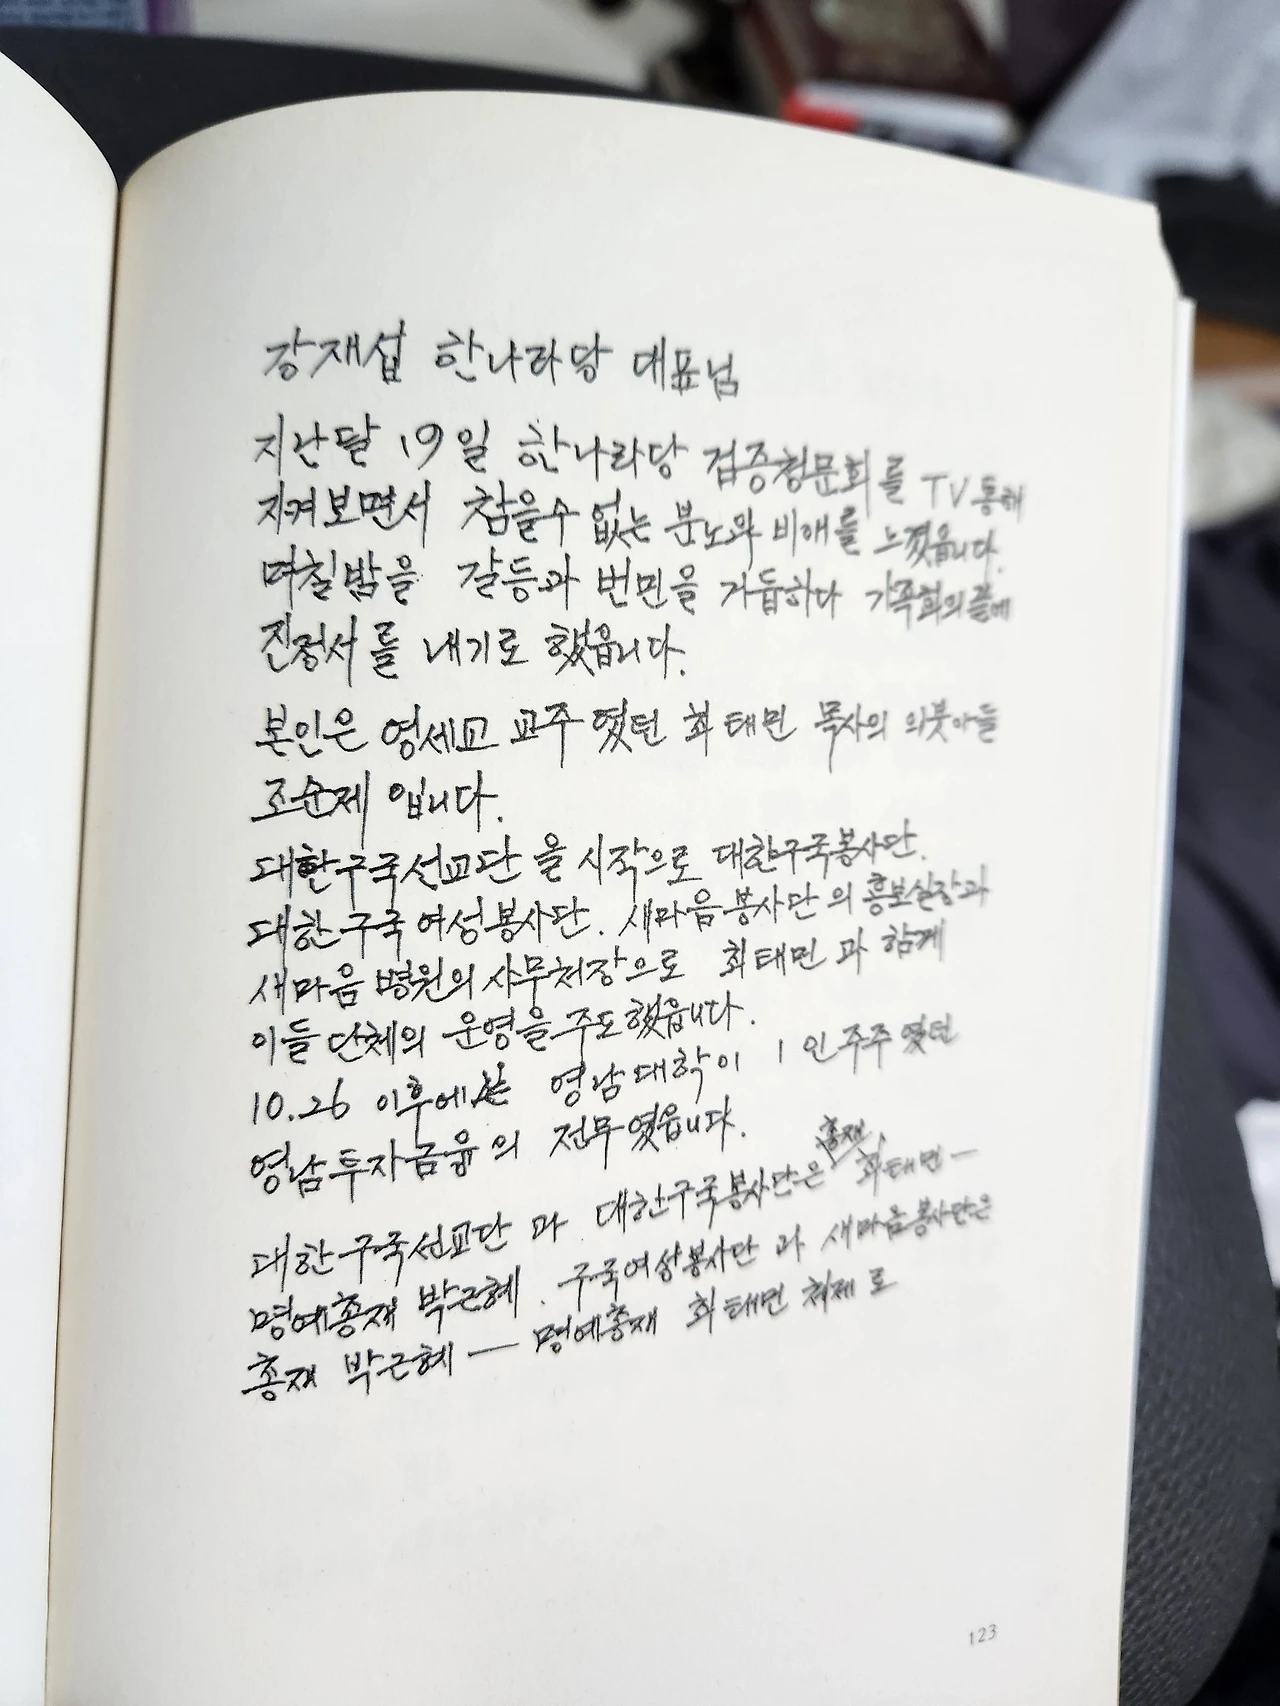 강재섭 한나라당 대표님
지난달 19일 한나라당 검증청문회를 TV통해
지켜보면서 참을수 없는 분노와 비애를 느꼈읍니다.
며칠밤을 갈등과 번민을 거듭하다 가족회의끝에
진정서를 내기로 했읍니다.
본인은 영세교 교주였던 최태민 목사의 의붓아들
조순제 입니다.
대한구국선교단을 시작으로 대한구국봉사단.
대한구국 여성봉사단. 새마음봉사단의 홍보실장과
새마음 병원의 사무처장으로 최태민과 함께
이들 단체의 운영을 주도했읍니다.
10.26 이후에는 영남대학이 1인주주였던
영남투자금융의 전무였읍니다.
대한구국선교단과 대한구국봉사단은 총재 최태민—
명예총재 박근혜. 구국여성봉사단과 새마음봉사단은
총재 박근혜 — 명예총재 최태민 체제로
123